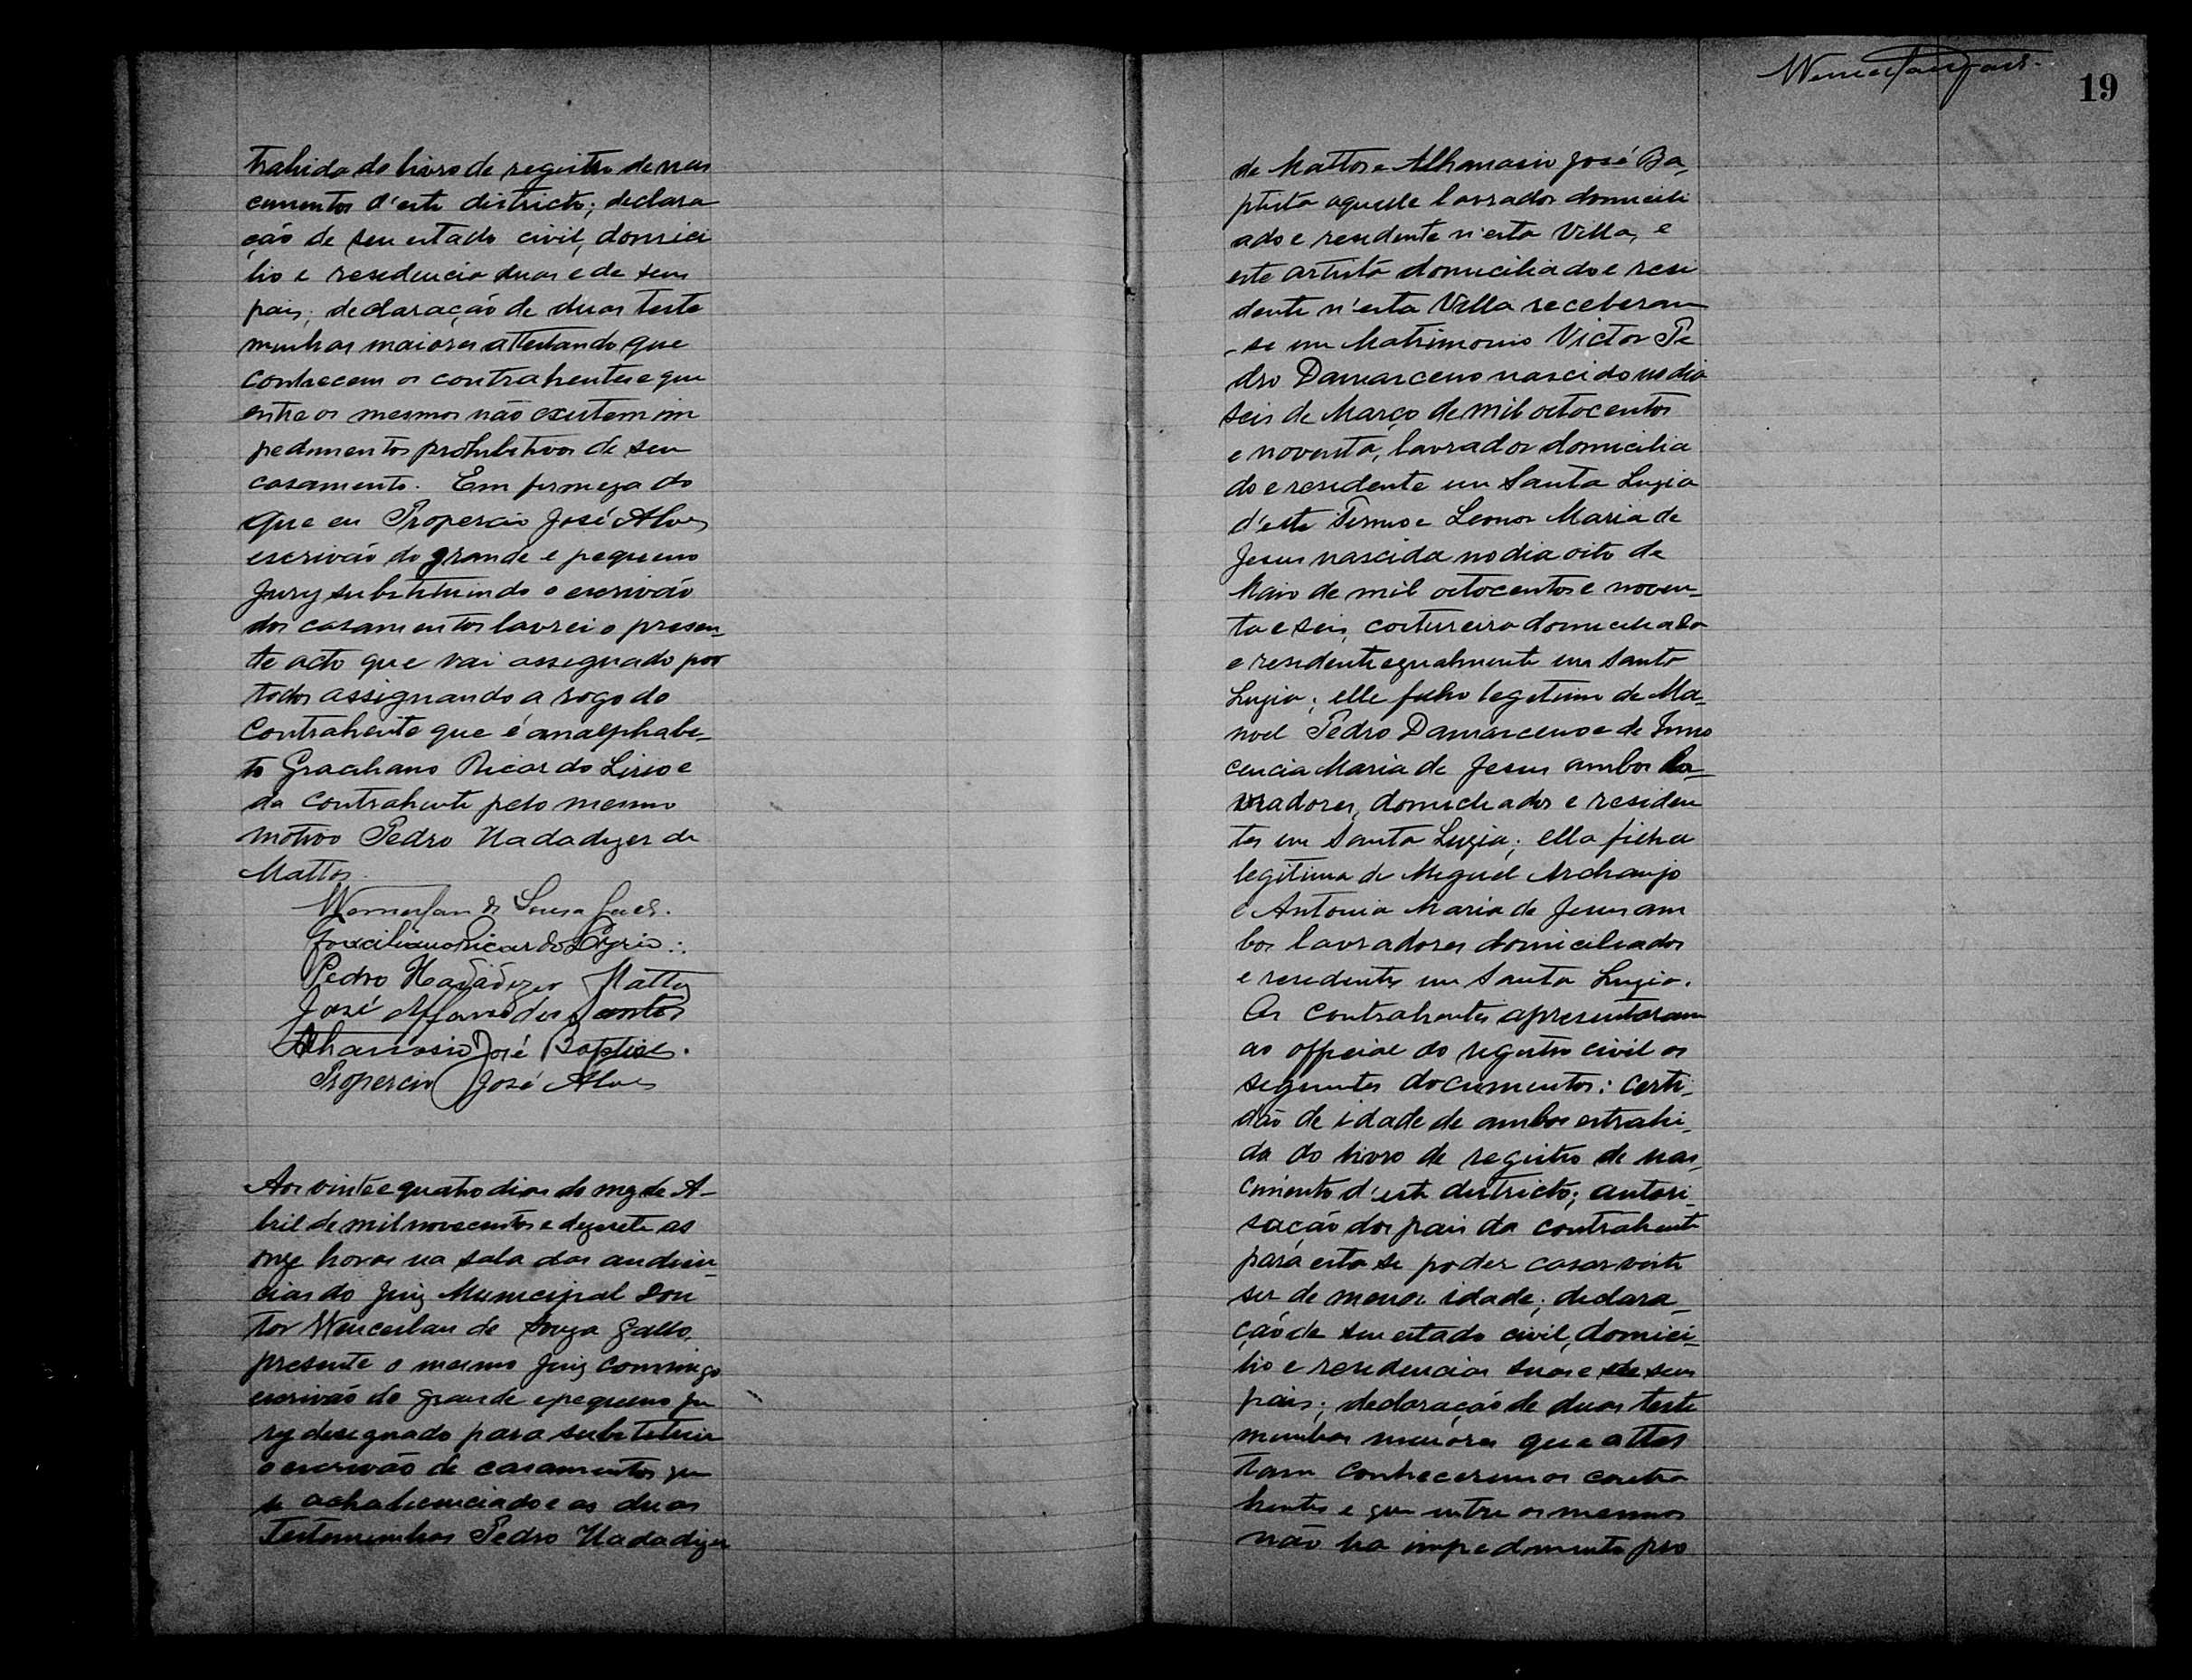 trahida do livro de registro de nas
cimentos d'este districto; declara
ção de seu estado civil, domici
lio e residencia suas e de seus
pais; declaração de duas teste
munhas maiores attestando que
conhecem os contrahentes e que
entre os mesmos não existem im
pedimentos prohibitivos de seu
casamento. Em firmeza do
que eu Propercio José Alves
escrivão do grande e pequeno
Jury substituindo o escrivão
dos casamentos lavrei o presen-
te acto que vai assignado por
todos assignando a rogo do
Contrahente que é analphabe-
to Graciliano Ricardo Lirio e
da contrahente pelo mesmo
motivo Pedro Nadadizer de
Mattos.
Wenceslau de Souza
Graciliano Ricardo Lyrio
Pedro Nadadizer Mattos
José Affonso dos Santos
Athanasio José Baptista.
Propercio José Alves
Aos vinte e quatro dias do mez de A-
bril de mil novecentos e dezesete as
onze horas na sala das audien-
cias do Juiz Municipal Dou
tor Wenceslau de Souza Gallo,
presente o mesmo Juiz commigo
escrivão do grande e pequeno ju
ry designado para substituir
o escrivão de casamentos que
se acha licenciado e as duas
Testemunhas Pedro Nadadizer
Wenceslau
19
de Mattos e Athanasio José Ba-
ptista aquelle lavrador domicili
ado e residente n'esta Villa, e
este artista domiciliado e resi
dente n'esta Villa receberam
-se em Matrimonio Victor Pe
dro Damasceno nascido no dia
seis de Março de mil octocentos
e noventa, lavrador domicilia
do e residente em Santa Luzia
d'este Termo e Leonor Maria de
Jesus nascida no dia oito de
Maio de mil octocentos e noven-
ta e seis, costureira domiciliada
e residente egualmente em Santa
Luzia; elle filho legitimo de Ma-
noel Pedro Damasceno e de Inno
cencia Maria de Jesus ambos la-
vradores, domiciliados e residen
tes em Santa Luzia; ella filha
legitima de Miguel Archanjo
e Antonia Maria de Jesus am
bos lavradores domiciliados
e residentes em Santa Luzia.
Os contrahentes apresentaram
ao official do registro civil os
seguintes documentos: certi-
dão de idade de ambos extrahi-
da do livro de registro de nas-
cimento d'este districto; autori-
sação dos pais da contrahente
para esta se poder casar visto
ser de menor idade; declara-
ção de seu estado civil, domici-
lio e residencias suas e de seus
pais; declaração de duas teste
munhas maiores que attes
tam conhecerem os contra
hentes e que entre os mesmos
não ha impedimento pro